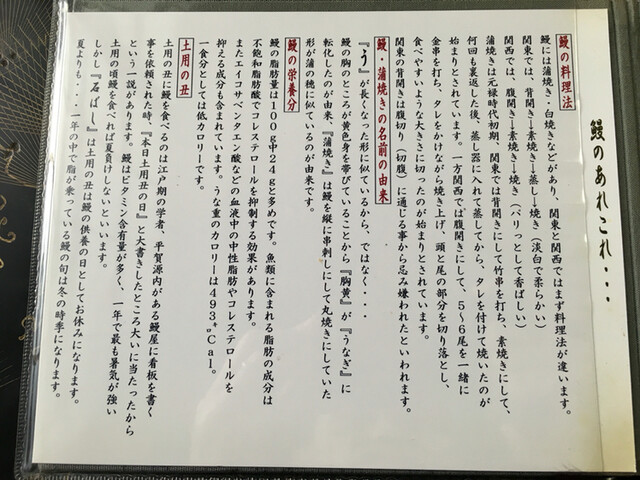 鰻のあれこれ・・・
鰻の料理法
鰻には蒲焼き・白焼きなどがあり、関東と関西ではまず料理法が違います。
関東では、背開き→素焼き→蒸し→焼き（淡白で柔らかい）
関西では、腹開き→素焼き→焼き（パリっとして香ばしい）
蒲焼きは元禄時代初期、関東では背開きにして竹串を打ち、素焼きにして、
何回も裏返した後、蒸し器に入れて蒸してから、タレを付けて焼いたのが
始まりとされています。一方関西では腹開きにして、5～6尾を一緒に
金串を打ち、タレをかけながら焼き上げ、頭と尾の部分を切り落とし、
食べやすいような大きさに切ったのが始まりとされています。
関東の背開きは腹切り（切腹）に通じる事から忌み嫌われたといわれます。
鰻・蒲焼きの名前の由来
『う』が長くつった形に似ているから、ではなく・・・
鰻の胸のところが黄色身を帯びていることから『胸黄』が『うなぎ』に
転化したのが由来、『蒲焼き』は鰻を縦に串刺しにして丸焼きにしていた
形が蒲の穂に似ているのが由来です。
鰻の栄養分
鰻の脂肪量は100g中24gと多めです。魚類に含まれる脂肪の成分は
不飽和脂肪酸でコレステロールを抑制する効果があります。
またエイコサペンタエン酸などの血液中の中性脂肪やコレステロールを
抑える成分も含まれています。うな重のカロリーは493㌔Cal。
一食分としては低カロリーです。
土用の丑
土用の丑に鰻を食べるのは江戸期の学者、平賀源内がある鰻屋に看板を書く
事を依頼された時、『本日土用丑の日』と大書きしたところ大いに当たったから
という一説があります。鰻はビタミン含有量が多く、一年で最も暑気が強い
土用の頃鰻を食べれば夏負けしないといいます。
しかし『石ばし』は土用の丑は鰻の供養の日としてお休みになります。
夏よりも・・・一年の中で脂が乗っている鰻の旬は冬の時季になります。